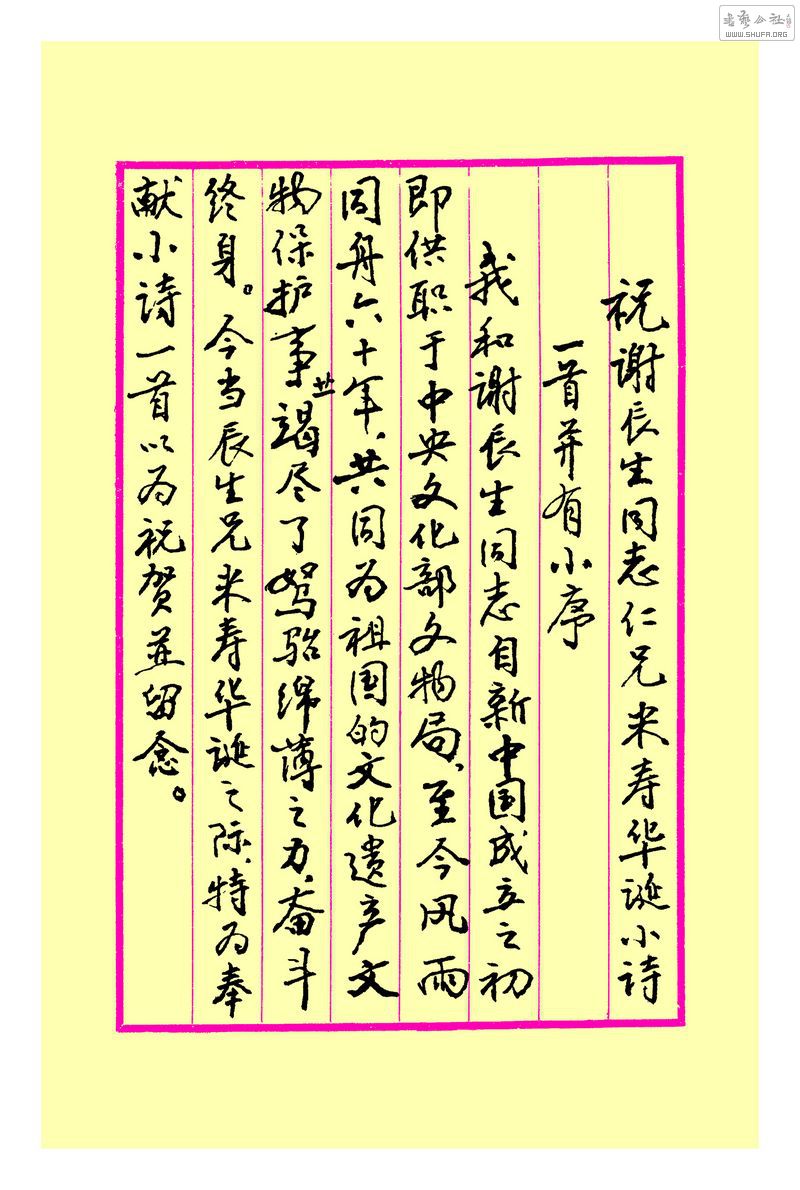 祝谢辰生同志仁兄米寿华诞小诗
一首并有小序
我和谢辰生同志自新中国成立之初
即供职于中央文化部文物局、至今风雨
同舟六十年、共同为祖国的文化遗产文
物保护事业竭尽了驽骀绵薄之力、奋斗
终身。今当辰生兄米寿华诞之际、特为奉
献小诗一首以为祝贺并留念。
書藝公社
WWW.SHUFA.ORG